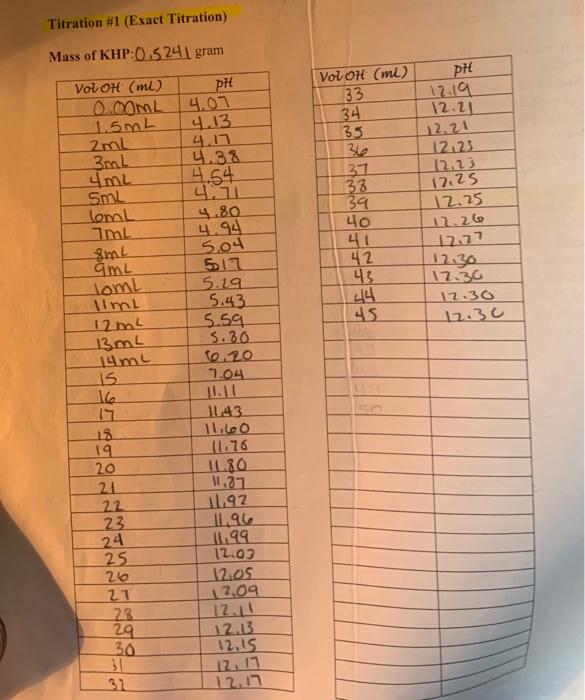 Titration #1 (Exact Titration)
Mass of KHP: 0.5241 gram
Vol OH (mL) pH
0.00mL 4.07
1.5mL 4.13
2mL 4.17
3mL 4.38
4mL 4.54
5mL 4.71
6mL 4.80
7mL 4.94
8mL 5.04
9mL 5.17
10mL 5.29
11mL 5.43
12mL 5.59
13mL 5.80
14mL 6.20
15 7.04
16 11.11
17 11.43
18 11.60
19 11.76
20 11.80
21 11.87
22 11.92
23 11.96
24 11.99
25 12.03
26 12.05
27 12.09
28 12.11
29 12.13
30 12.15
31 12.17
32 12.17
Vol OH (mL) pH
33 12.19
34 12.21
35 12.21
36 12.23
37 12.23
38 12.25
39 12.25
40 12.26
41 12.27
42 12.30
43 12.30
44 12.30
45 12.30
49
50